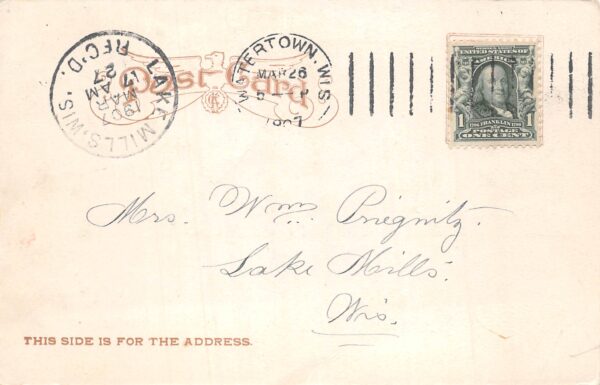 Post Card
LAKE MILLS, WIS.
REC'D.
MAR
27
AM
1907
WATERTOWN, WIS.
MAR 26
5 - P
1907
UNITED STATES OF
AMERICA
1
1
1706 FRANKLIN 1790
POSTAGE
ONE CENT
Mrs. Wm. Priegnitz.
Lake Mills.
Wis.
THIS SIDE IS FOR THE ADDRESS.